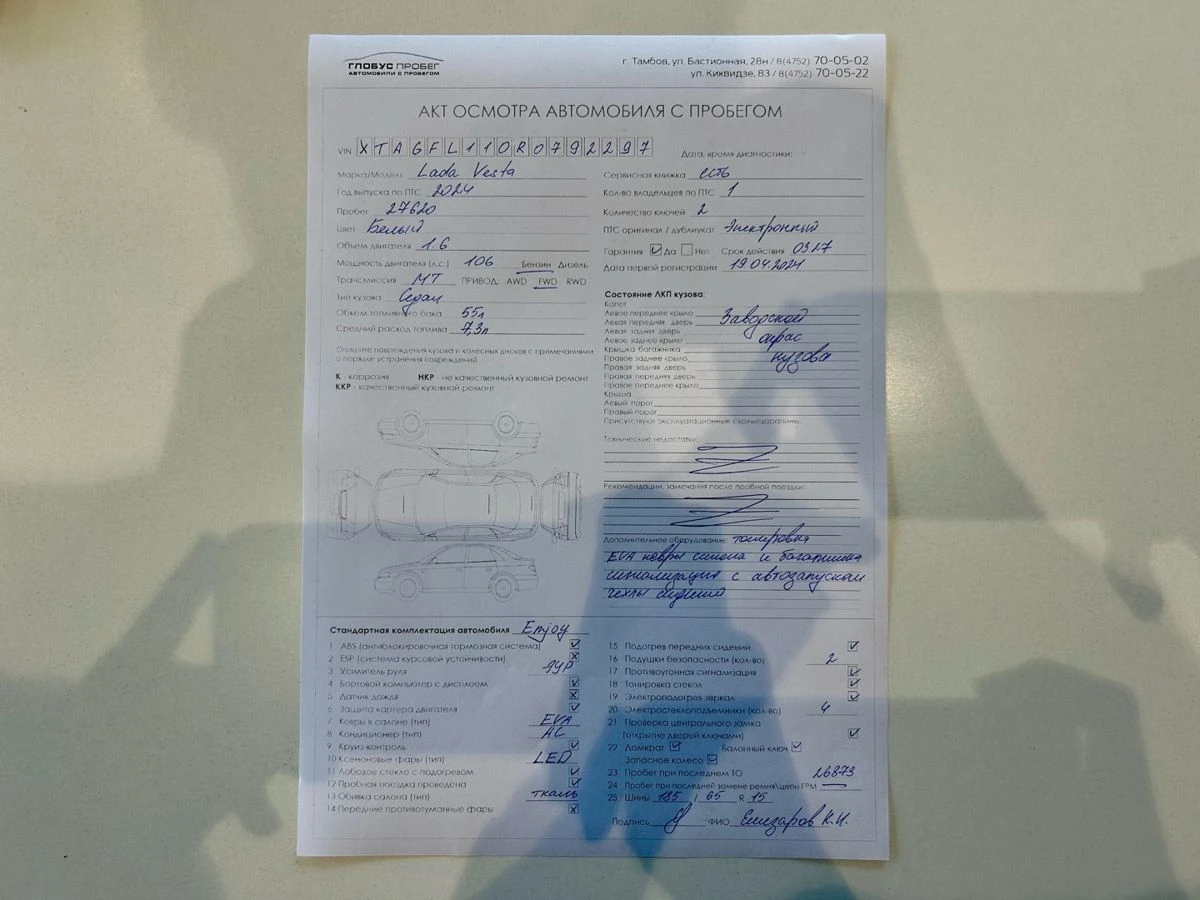 ГЛОБУС ПРОБЕГ
АВТОМОБИЛИ С ПРОБЕГОМ
г. Тамбов, ул. Бастионная, 28н / 8(4752) 70-05-02
ул. Киквидзе, 83 / 8(4752) 70-05-22
АКТ ОСМОТРА АВТОМОБИЛЯ С ПРОБЕГОМ
VIN XTAGFL110R0792297
Марка/Модель Lada Vesta
Год выпуска по ПТС 2024
Пробег 27620
Цвет Белый
Объем двигателя 1.6
Мощность двигателя (л.с.) 106 Бензин Дизель
Трансмиссия МТ ПРИВОД: AWD FWD RWD
Тип кузова Седан
Объем топливного бака 55л
Средний расход топлива 7,3л
Опишите повреждения кузова и колесных дисков с примечаниями
о порядке устранения повреждений
К - коррозия НКР - не качественный кузовной ремонт
ККР - качественный кузовной ремонт
Дата, время диагностики:
Сервисная книжка есть
Кол-во владельцев по ПТС 1
Количество ключей 2
ПТС оригинал / дубликат Электронный
Гарантия Да Нет Срок действия 03.27
Дата первой регистрации 19.04.2024
Состояние ЛКП кузова:
Капот
Левое переднее крыло Заводской
Левая передняя дверь
Левая задняя дверь
Левое заднее крыло окрас
Крышка багажника
Правое заднее крыло кузова
Правая задняя дверь
Правая передняя дверь
Правое переднее крыло
Крыша
Левый порог
Правый порог
Присутствуют эксплуатационные сколы/царапины.
Технические недостатки:
Рекомендации, замечания после пробной поездки:
Дополнительное оборудование: тонировка
EVA ковры салона и багажника
сигнализация с автозапуском
чехлы сидений
Стандартная комплектация автомобиля Enjoy
1 ABS (антиблокировочная тормозная система)
2 ESP (система курсовой устойчивости)
3 Усилитель руля ЭУР
4 Бортовой компьютер с дисплеем
5 Датчик дождя
6 Защита картера двигателя
7 Ковры в салоне (тип) EVA
8 Кондиционер (тип) АС
9 Круиз-контроль
10 Ксеноновые фары (тип) LED
11 Лобовое стекло с подогревом
12 Пробная поездка проведена
13 Обивка салона (тип) ткань
14 Передние противотуманные фары
15 Подогрев передних сидений
16 Подушки безопасности (кол-во) 2
17 Противоугонная сигнализация
18 Тонировка стекол
19 Электроподогрев зеркал
20 Электростеклоподъемники (кол-во) 4
21 Проверка центрального замка
(открытие дверей ключами)
22 Домкрат Балонный ключ
Запасное колесо
23 Пробег при последнем ТО 26873
24 Пробег при последней замене ремня\цепи ГРМ —
25 Шины 185 / 65 R 15
Подпись ФИО Елизаров К.И.